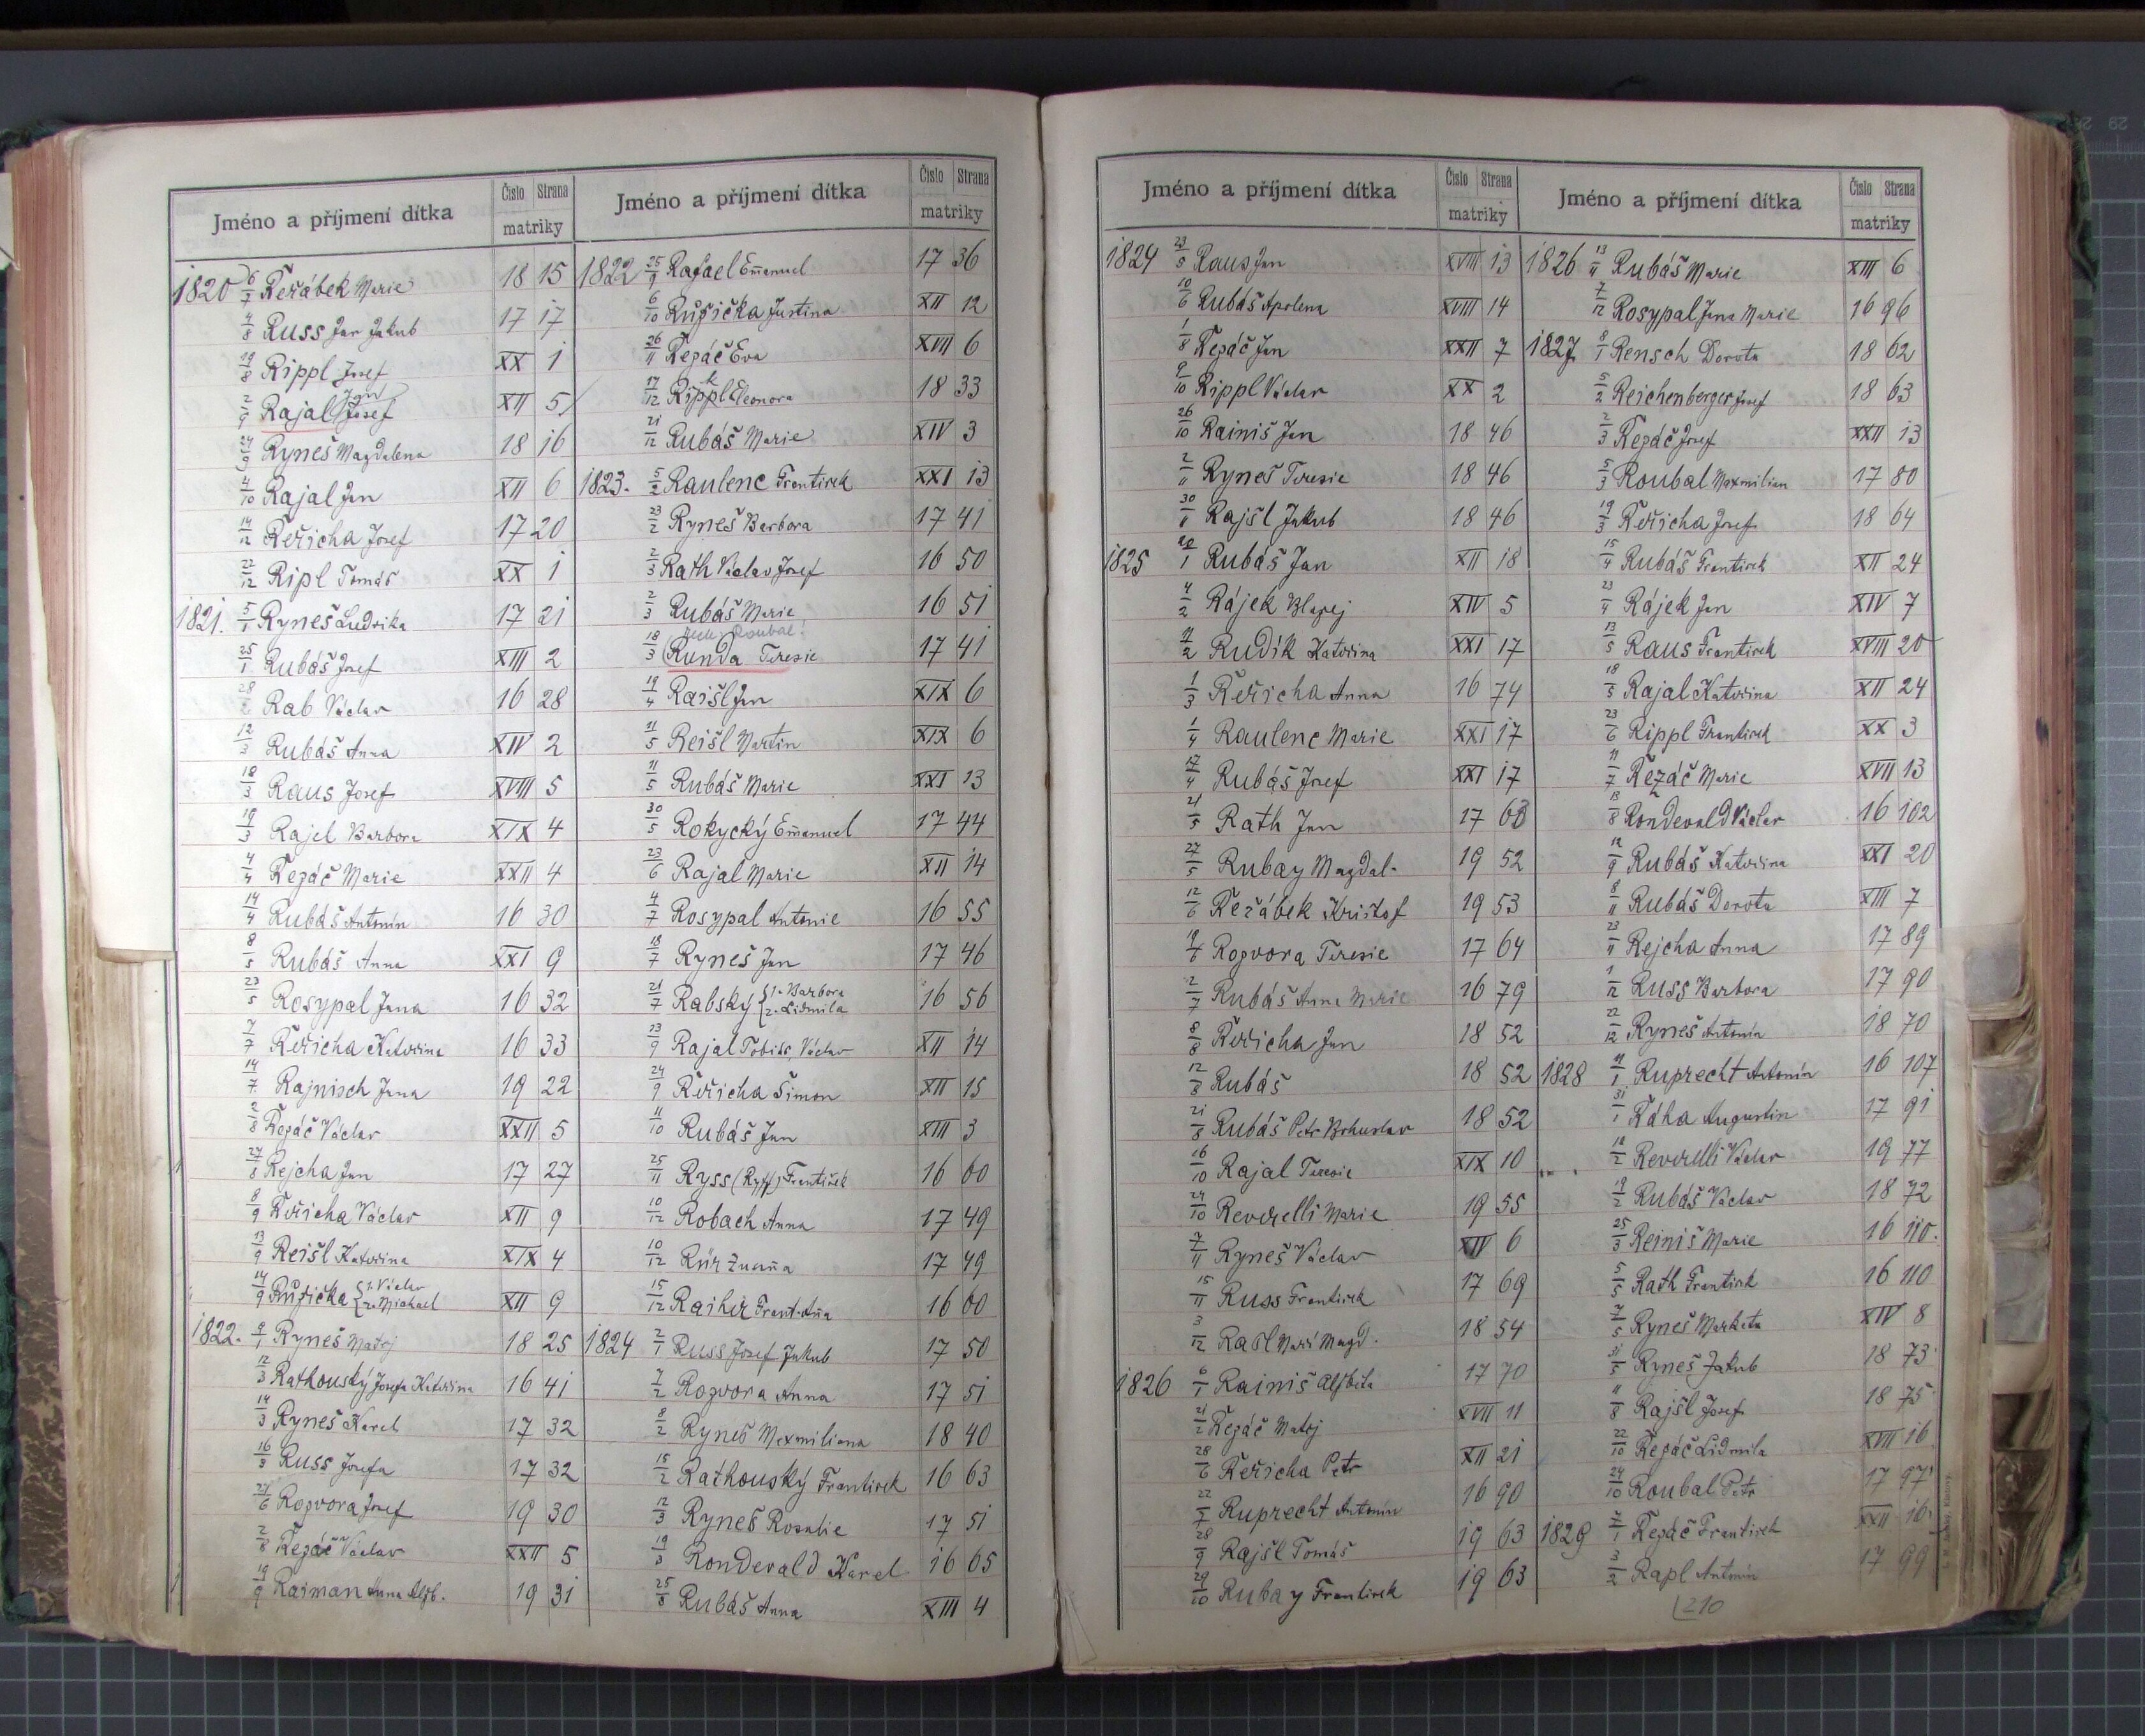 Jméno a příjmení dítka
Číslo Strana
matriky
1820 6/7 Řeřábek Marie 18 15
4/8 Russ Jan Jakub 17 17
19/8 Rippl Josef XX 1
Jan
2/9 Rajal Josef XII 5
24/9 Ryneš Magdalena 18 16
4/10 Rajal Jan XII 6
14/12 Řeřicha Josef 17 20
22/12 Ripl Tomáš XX 1
1821. 5/1 Ryneš Ludvika 17 21
25/1 Rubáš Josef XIII 2
28/2 Rab Václav 16 28
12/3 Rubáš Anna XIV 2
18/3 Raus Josef XVIII 5
19/3 Rajel Barbora XIX 4
4/4 Řezáč Marie XXII 4
14/4 Rubáš Antonín 16 30
8/5 Rubáš Anna XXI 9
23/5 Rosypal Jana 16 32
7/7 Řeřicha Kateřina 16 33
14/7 Rajnisch Jana 19 22
2/8 Řezáč Václav XXII 5
27/8 Rejcha Jan 17 27
8/9 Řeřicha Václav XII 9
13/9 Reišl Kateřina XIX 4
14/9 Růžička {1. Václav 2. Michael XII 9
1822. 9/1 Ryneš Matěj 18 25
12/3 Rathouský Josefa Kateřina 16 41
14/3 Ryneš Karel 17 32
16/3 Russ Josefa 17 32
21/6 Rozvora Josef 19 30
2/8 Řezáč Václav XXII 5
19/9 Raiman Anna Alžb. 19 31
Jméno a příjmení dítka
Číslo Strana
matriky
1822 25/9 Rafael Emanuel 17 36
6/10 Růžička Justina XII 12
26/11 Řezáč Eva XVII 6
17/12 Rippl Eleonora 18 33
21/12 Rubáš Marie XIV 3
1823. 5/2 Raulenc František XXI 13
23/2 Ryneš Barbora 17 41
2/3 Rath Václav Josef 16 50
2/3 Rubáš Marie 16 51
Roubal!
18/3 (Runda Teresie 17 41
19/4 Raišl Jan XIX 6
11/5 Reišl Martin XIX 6
11/5 Rubáš Marie XXI 13
30/5 Rokycký Emanuel 17 44
23/6 Rajal Marie XII 14
4/7 Rosypal Antonie 16 55
18/7 Ryneš Jan 17 46
21/7 Rabský {1. Barbora 2. Lidmila 16 56
13/9 Rajal Tobiáš, Václav XII 14
24/9 Řeřicha Šimon XII 15
11/10 Rubáš Jan XIII 3
25/11 Ryss (Ryff) František 16 60
10/12 Robach Anna 17 49
10/12 Rür Zuzaňa 17 49
15/12 Raiher Frant. Aňa 16 60
1824 2/1 Russ Josef Jakub 17 50
7/2 Rozvora Anna 17 51
8/2 Ryneš Maxmiliana 18 40
15/2 Rathouský František 16 63
12/3 Ryneš Rosalie 17 51
19/3 Rondevald Karel 16 65
25/3 Rubáš Anna XIII 4
Jméno a příjmení dítka
Číslo Strana
matriky
1824 23/5 Raus Jan XVIII 13
10/6 Rubáš Apolena XVIII 14
1/8 Řezáč Jan XXII 7
9/10 Rippl Václav XX 2
26/10 Rainiš Jan 18 46
2/11 Ryneš Teresie 18 46
30/11 Rajšl Jakub 18 46
1825 20/1 Rubáš Jan XII 18
4/2 Rájek Blažej XIV 5
11/2 Rudik Kateřina XXI 17
1/3 Řeřicha Anna 16 74
1/4 Raulenc Marie XXI 17
17/4 Rubáš Josef XXI 17
21/5 Rath Jan 17 63
27/5 Rubay Magdal. 19 52
12/6 Řeřábek Krištof 19 53
19/6 Rozvora Teresie 17 64
2/7 Rubáš Anna Marie 16 79
8/8 Řeřicha Jan 18 52
12/8 Rubáš 18 52
21/8 Rubáš Petr Bohuslav 18 52
16/10 Rajal Teresie XIX 10
24/10 Reverelli Marie 19 55
7/11 Ryneš Václav XIV 6
15/11 Russ František 17 69
3/12 Rasl Marí Magd. 18 54
1826 6/1 Rainiš Alžběta 17 70
21/2 Řezáč Matěj XVII 11
28/6 Řeřicha Petr XII 21
22/7 Ruprecht Antonín 16 90
28/9 Rajšl Tomáš 19 63
29/10 Rubay František 19 63
Jméno a příjmení dítka
Číslo Strana
matriky
1826 13/11 Rubáš Marie XIII 6
7/12 Rosypal Jana Marie 16 96
1827. 8/1 Rensch Dorota 18 62
5/2 Reichenberger Josef 18 63
2/3 Řezáč Josef XXII 13
5/3 Roubal Maxmilian 17 80
19/3 Řeřicha Josef 18 64
15/4 Rubáš František XII 24
23/4 Rájek Jan XIV 7
13/5 Raus František XVIII 20
18/5 Rajal Kateřina XII 24
23/6 Rippl František XX 3
11/7 Řezáč Marie XVII 13
13/8 Rondevald Václav 16 102
12/9 Rubáš Kateřina XXI 20
8/11 Rubáš Dorota XIII 7
23/11 Rejcha Anna 17 89
1/12 Russ Barbora 17 90
22/12 Ryneš Antonín 18 70
1828 11/1 Ruprecht Antonín 16 107
31/1 Řáha Augustin 17 91
18/2 Reverelli Václav 19 77
19/2 Rubáš Václav 18 72
25/3 Reiniš Marie 16 110.
5/5 Rath František 16 110
7/5 Ryneš Markéta XIV 8
31/5 Ryneš Jakub 18 73
11/8 Rajšl Josef 18 75
22/10 Řezáč Lidmila XVII 16
24/10 Roubal Petr 17 97
1829 7/1 Řezáč František XXII 16.
3/2 Rapl Antonín 17 99
210